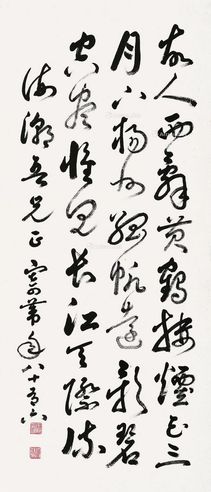 故人西辭黃鶴樓煙花三
月下揚州孤帆遠影碧
空盡惟見長江天際流
海潮吾兄正 年八十有六